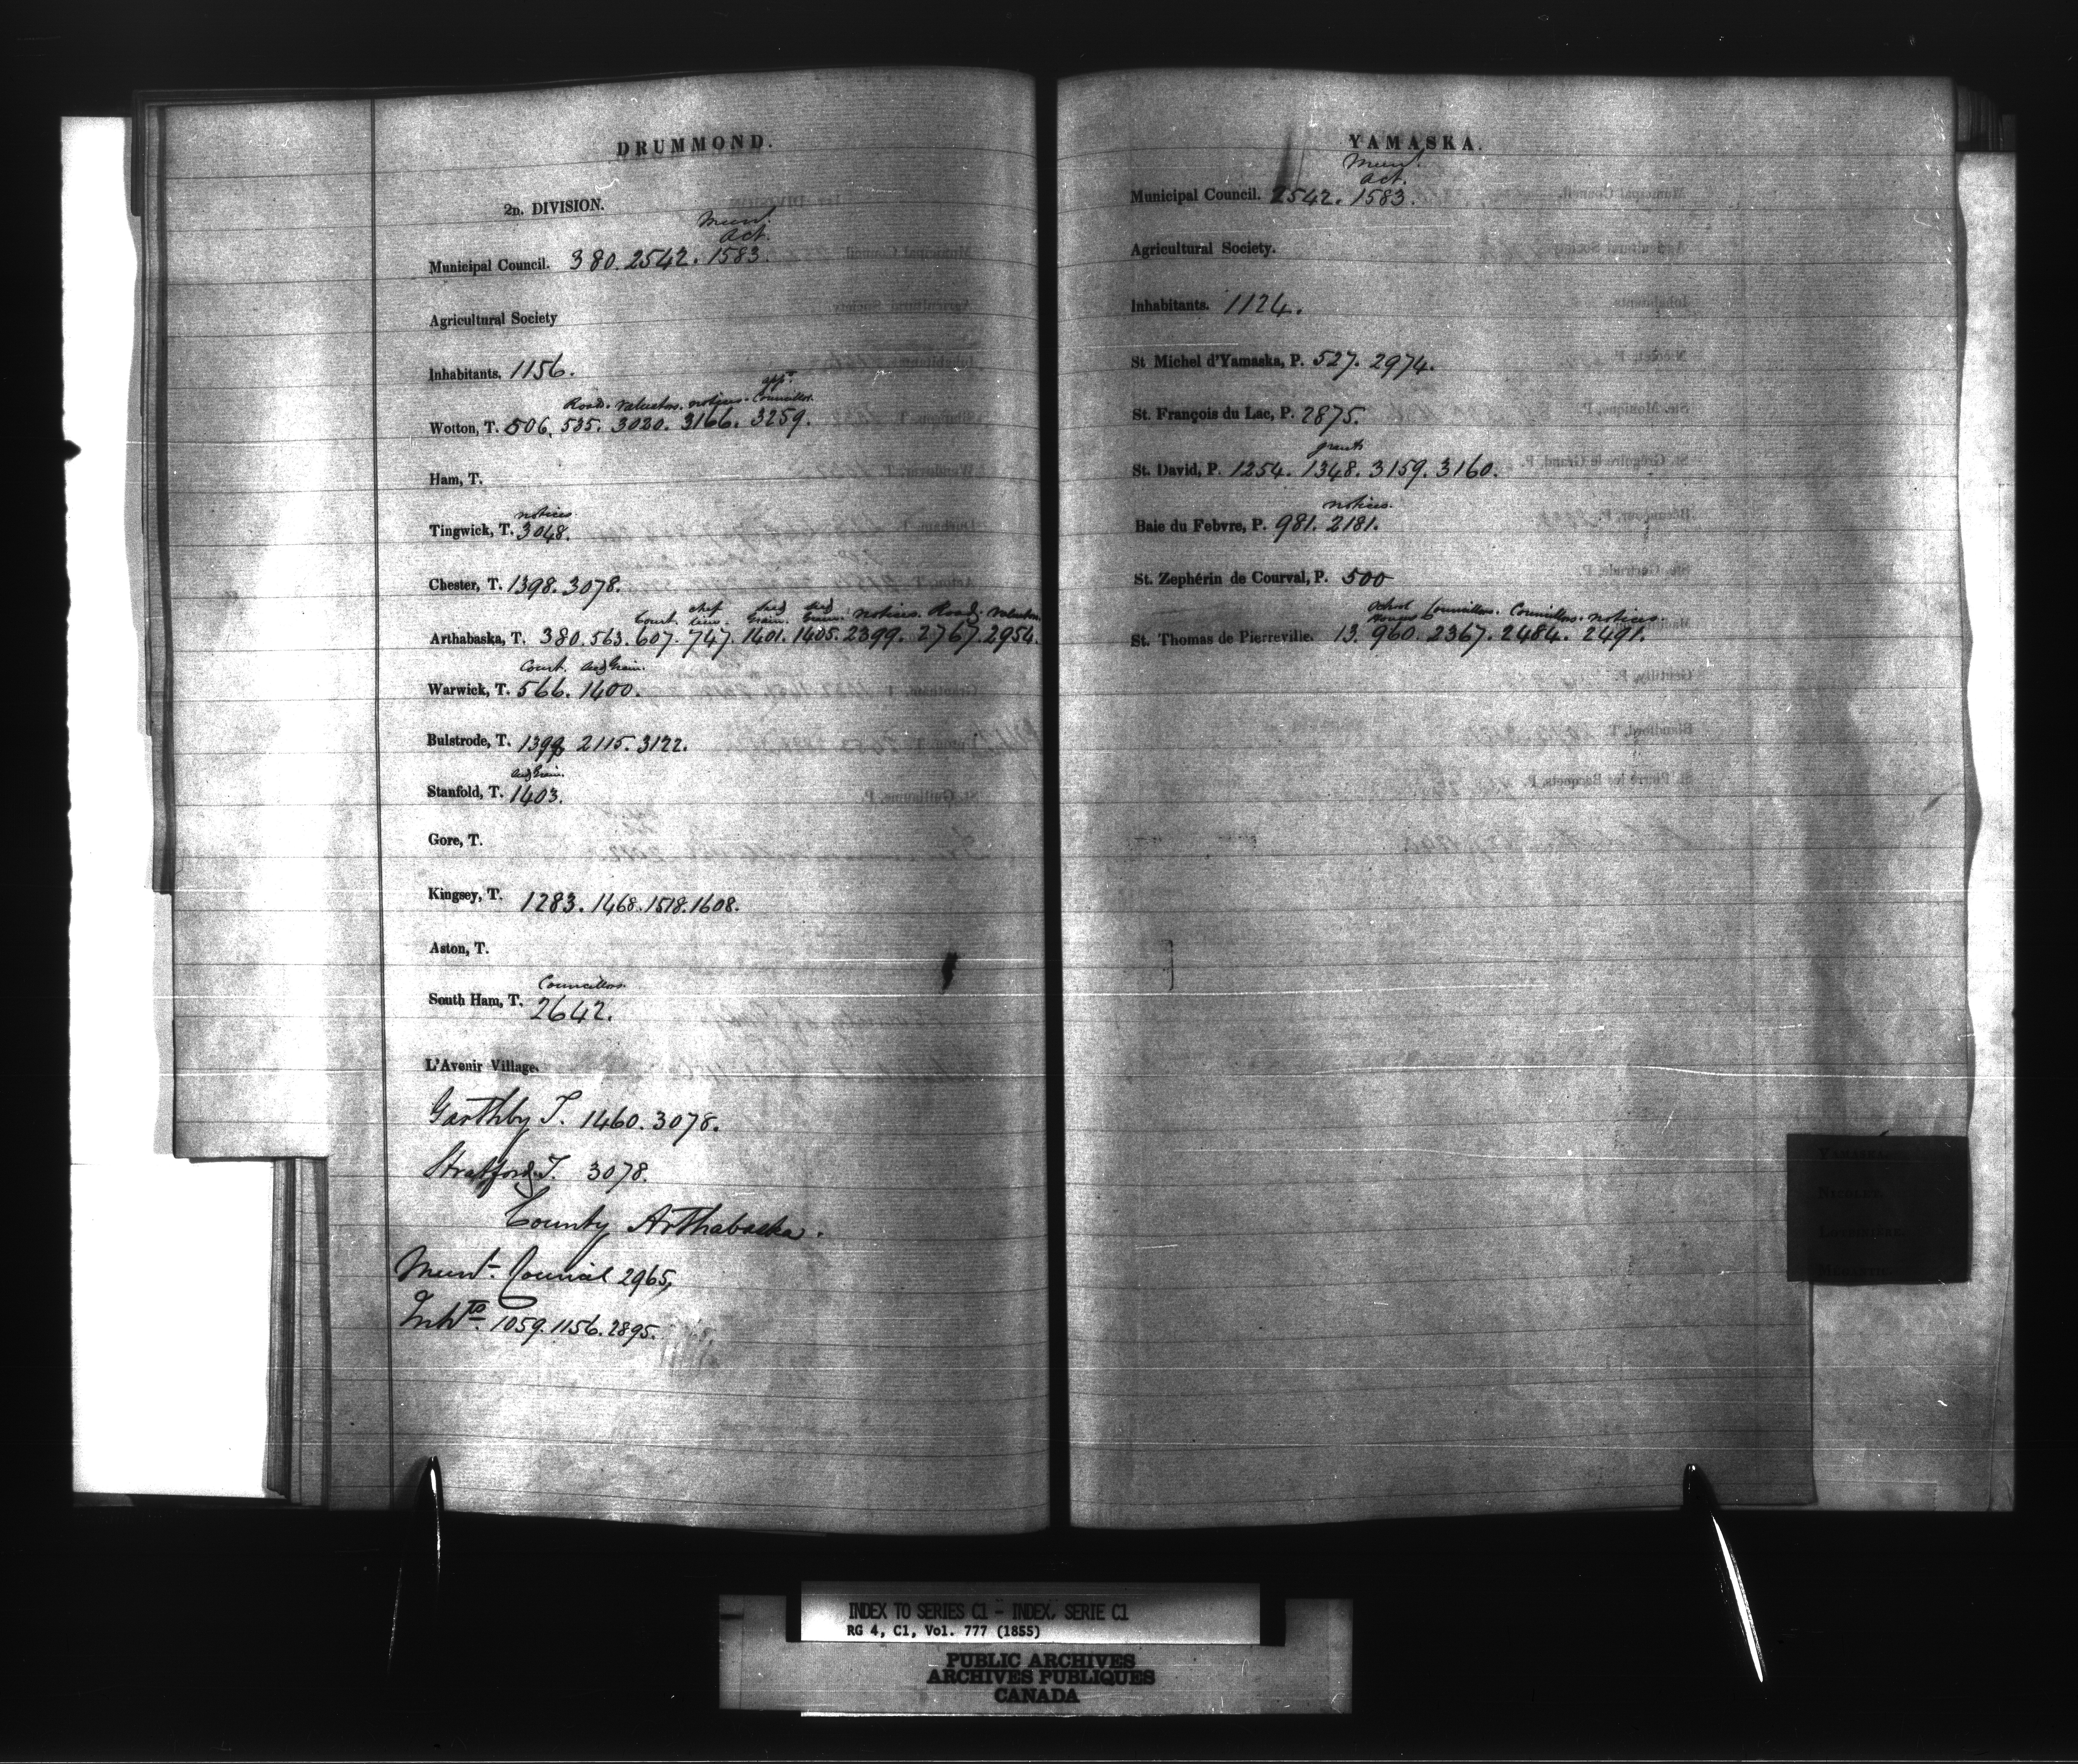 DRUMMOND.
2n. DIVISION.
Munl
Act.
Municipal Council. 380. 2542. 1583.
Agricultural Society
Inhabitants. 1156.
appt
Road. Valuators. notices. Councillor.
Wotton, T. 506. 535. 3020. 3166. 3259.
Ham, T.
notices
Tingwick, T. 3048.
Chester, T. 1398. 3078.
Court. notices. Road. Valuators
Arthabaska, T. 380. 563. 607. 747. 1401. 1405. 2399. 2767. 2954.
Court. Grain.
Warwick, T. 566. 1400.
Bulstrode, T. 1399 2115. 3122.
Grain.
Stanfold, T. 1403.
Gore, T.
Kingsey, T. 1283. 1468. 1518. 1608.
Aston, T.
Councillors.
South Ham, T. 2642.
L'Avenir Village.
Garthby T. 1460. 3078.
Stratford T. 3078.
County Arthabaska.
Munl. Council 2965,
Inhts. 1059. 1156. 2895.
YAMASKA.
Munl.
Act.
Municipal Council. 2542. 1583.
Agricultural Society.
Inhabitants. 1124.
St Michel d'Yamaska, P. 527. 2974.
St. François du Lac, P. 2875.
grant
St. David, P. 1254. 1348. 3159. 3160.
notices.
Baie du Febvre, P. 981. 2181.
St. Zephérin de Courval, P. 500
School Houses Councillors. Councillors. notices.
St. Thomas de Pierreville. 13. 960. 2367. 2484. 2491.
YAMASKA.
NICOLET.
INDEX TO SERIES C1 - INDEX, SERIE C1
RG 4, C1, Vol. 777 (1855)
PUBLIC ARCHIVES
ARCHIVES PUBLIQUES
CANADA